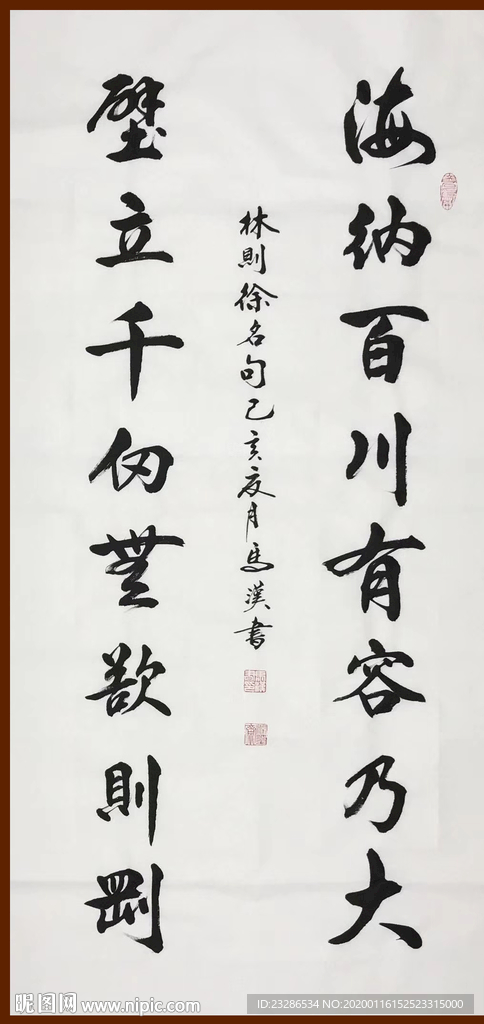 海納百川有容乃大
林則徐名句己亥夏月馬漢書
壁立千仞無欲則剛
昵图网 www.nipic.com
ID:23286534 NO:20200116152523315000